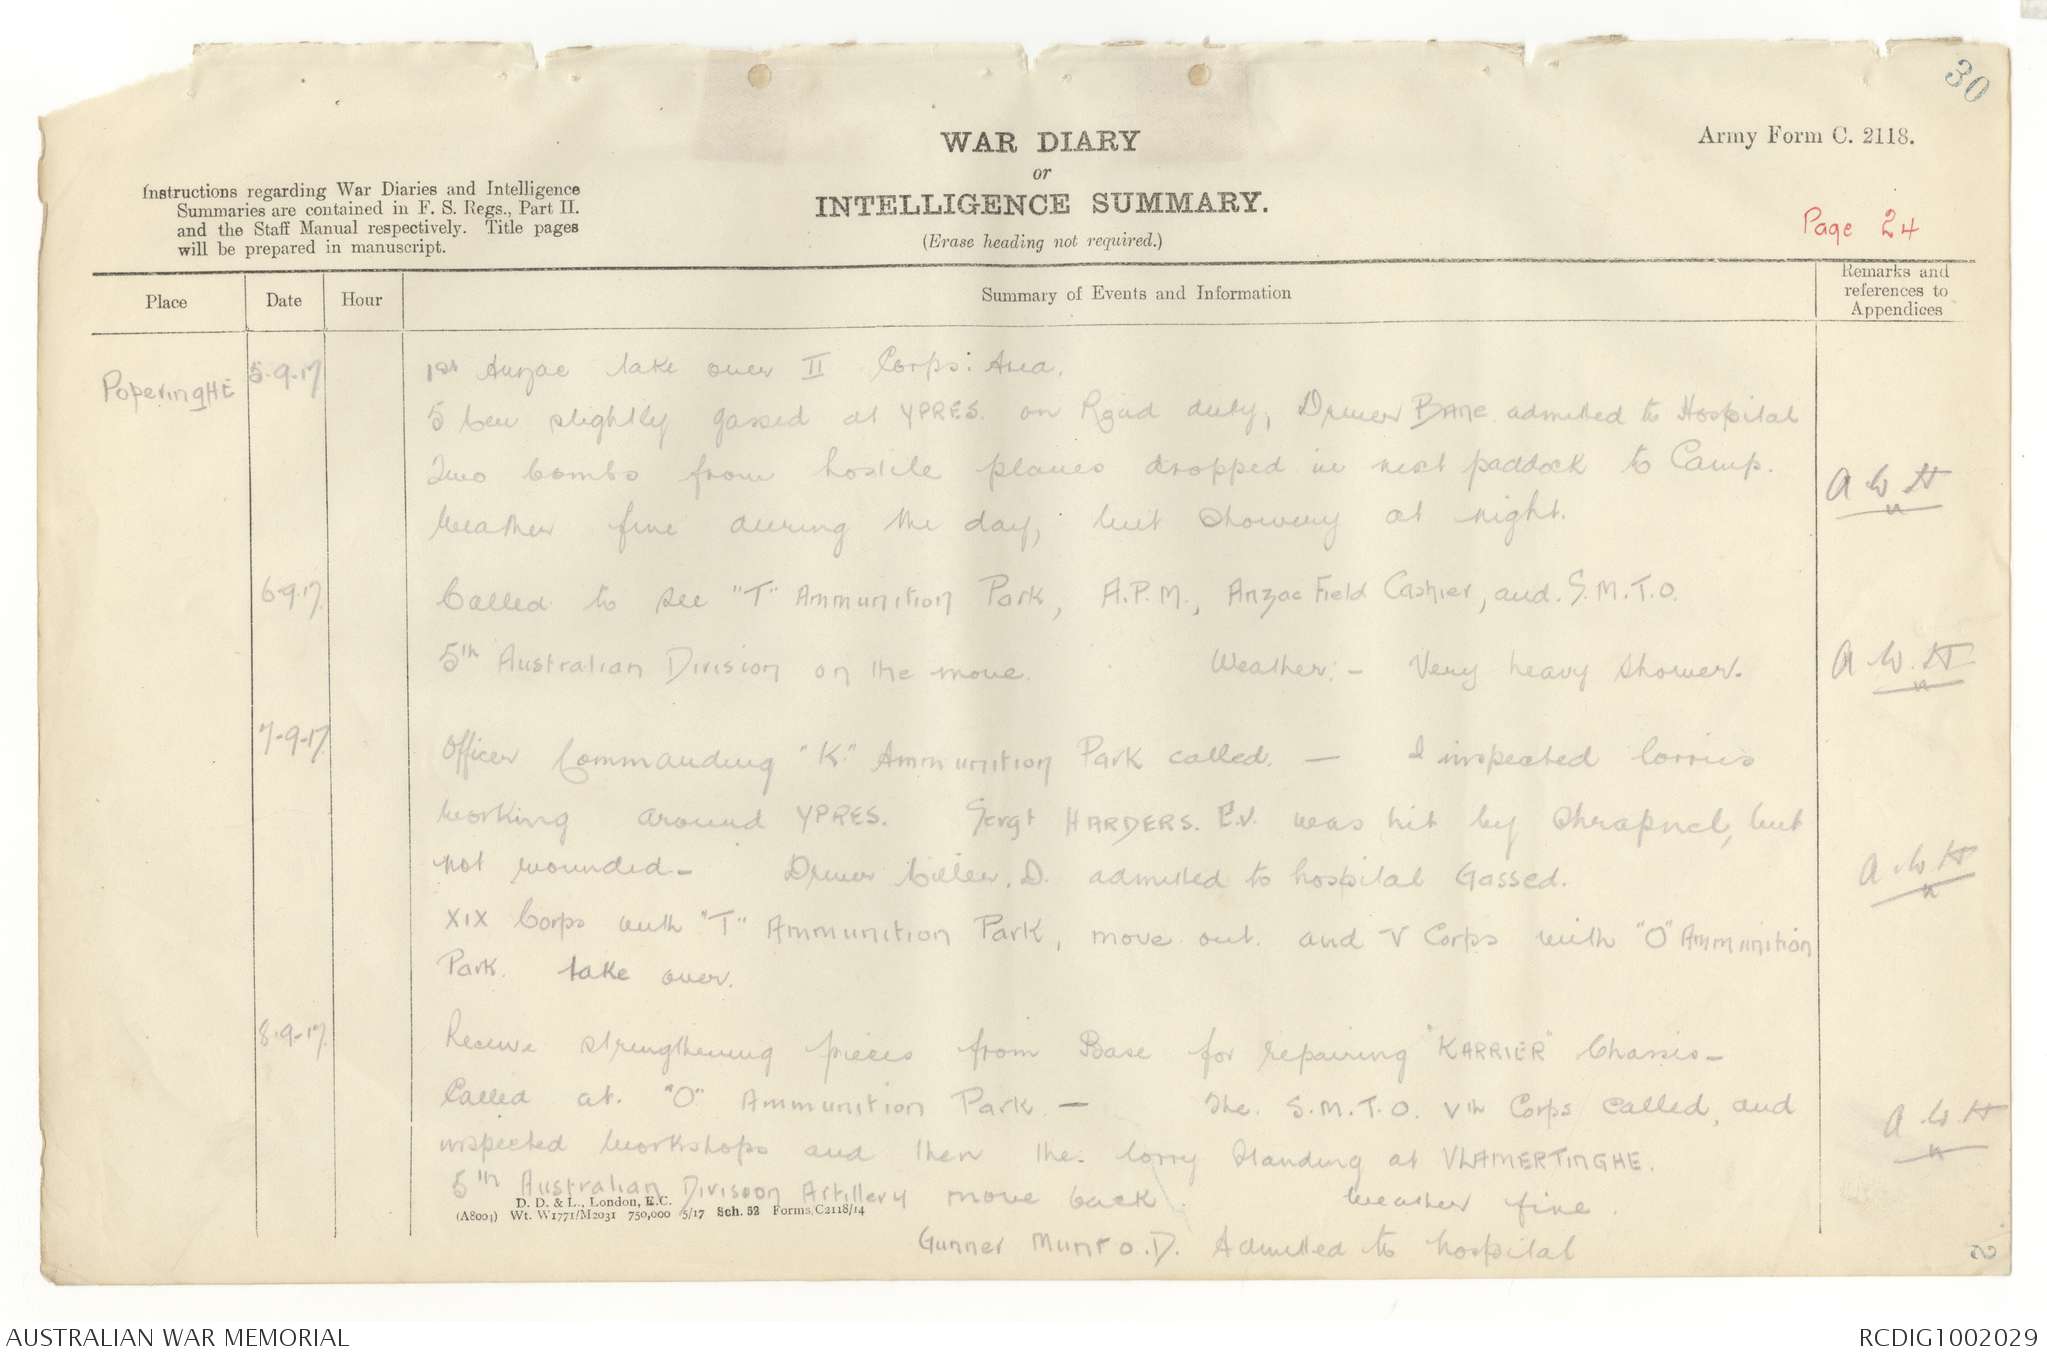 30
WAR DIARY
or
INTELLIGENCE SUMMARY.
(Erase heading not required.)
Army Form C. 2118.
Page 24
Instructions regarding War Diaries and Intelligence
Summaries are contained in F. S. Regs., Part II.
and the Staff Manual respectively. Title pages
will be prepared in manuscript.
Place Date Hour Summary of Events and Information Remarks and references to Appendices
PoperingHE 5-9-17 1st Anzac take over II Corps: Area.
5 Men slightly gassed at YPRES. on Road duty, Driver admitted to Hospital
Two bombs from hostile planes dropped in next paddock to Camp.
Weather fine during the day, but showery at night.
A W H
6-9-17 Called to see "T" Ammunition Park, A.P.M., Anzac Field Cashier, and S.M.T.O.
5th Australian Division on the move. Weather:- Very heavy shower.
A W. H
7-9-17 Officer Commanding "K" Ammunition Park called. — I inspected lorries
working around YPRES. Sergt HARDERS. E.V. was hit by Shrapnel, but
not wounded- Driver D. admitted to hospital Gassed.
A W H
XIX Corps with "T" Ammunition Park, move out and V Corps with "O" Ammunition
Park. take over.
8-9-17 Receive strengthening pieces from Base for repairing "KARRIER" Chassis-
Called at "O" Ammunition Park. — The S.M.T.O. Vth Corps called, and
inspected workshops and then the lorry Standing at VLAMERTINGHE.
A W H
5th Australian Division Artillery move back. Weather fine.
Gunner Munro. D. Admitted to hospital
D. D. & L., London, E.C.
(A8004) Wt. W1771/M2031 750,000 5/17 Sch. 52 Forms/C2118/14
AUSTRALIAN WAR MEMORIAL
RCDIG1002029